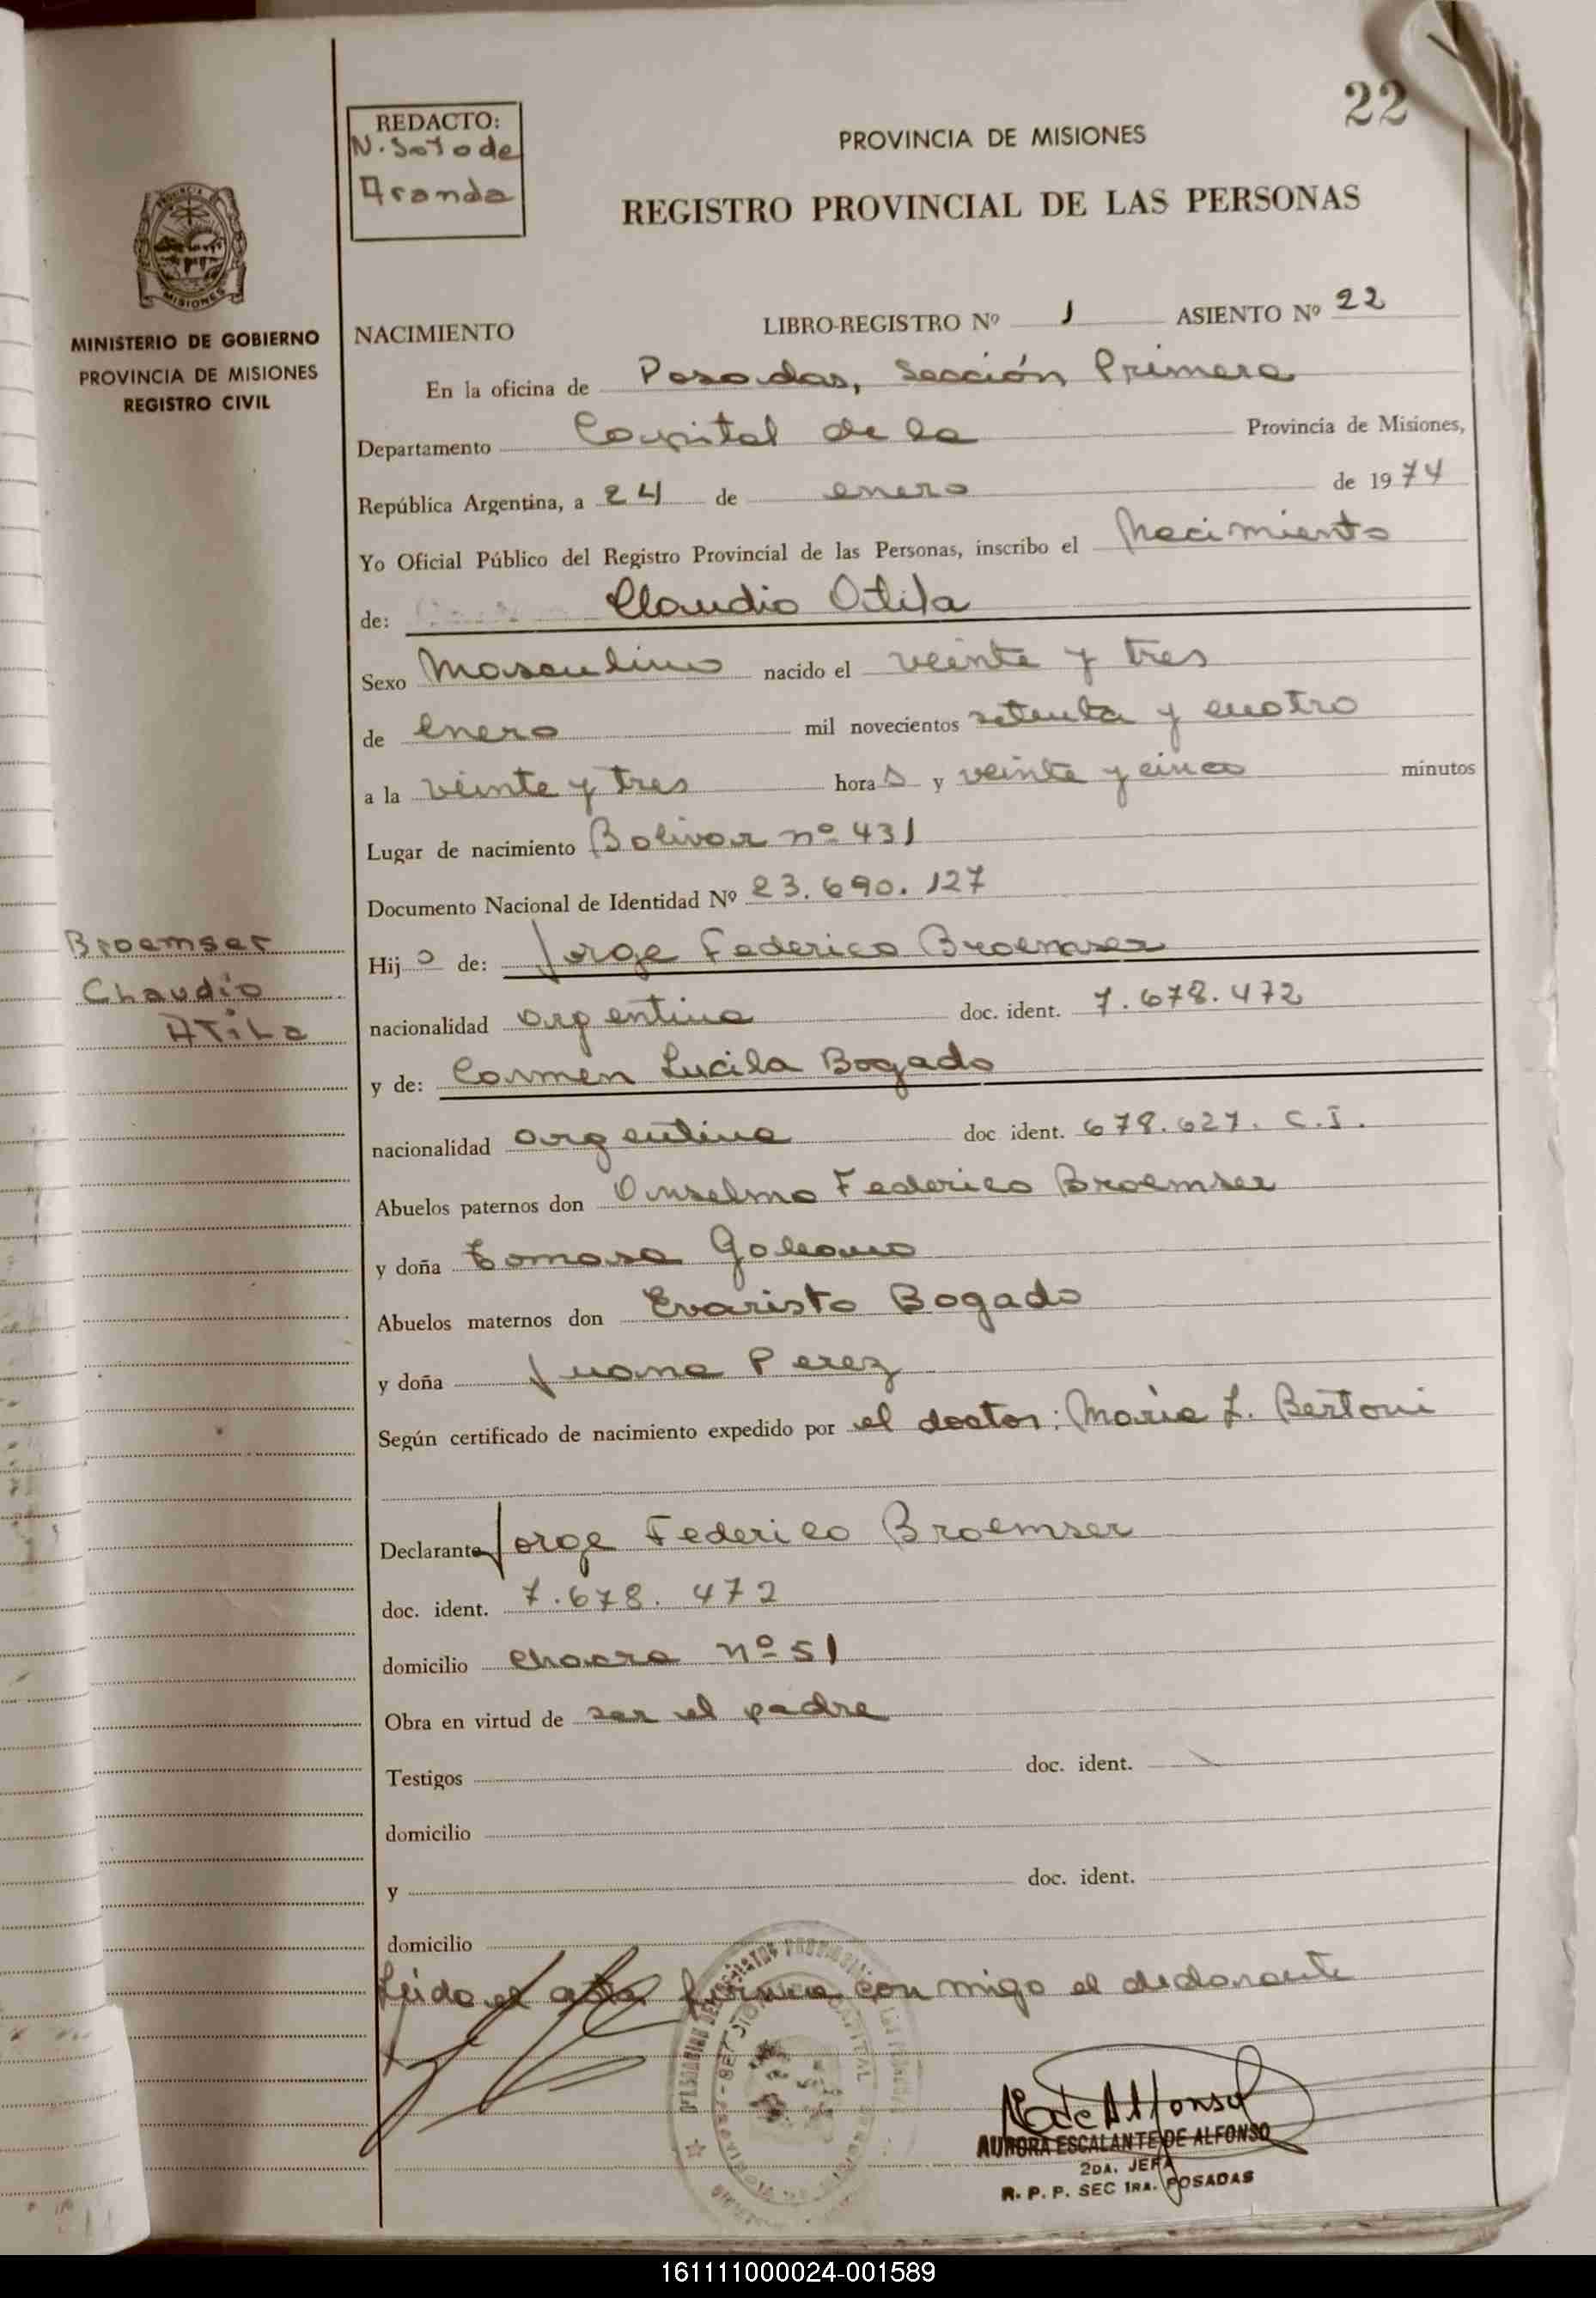 22
REDACTO:
N. Soto de
Aranda
PROVINCIA DE MISIONES
REGISTRO PROVINCIAL DE LAS PERSONAS
MISIONES
MINISTERIO DE GOBIERNO
PROVINCIA DE MISIONES
REGISTRO CIVIL
NACIMIENTO LIBRO-REGISTRO Nº 1 ASIENTO Nº 22
En la oficina de Posadas, Sección Primera
Departamento Capital de la Provincia de Misiones,
República Argentina, a 24 de enero de 1974
Yo Oficial Público del Registro Provincial de las Personas, inscribo el Nacimiento
de: Claudio Atila
Sexo Masculino nacido el veinte y tres
de enero mil novecientos setenta y cuatro
a la veinte y tres hora s y veinte y cinco minutos
Lugar de nacimiento Bolivar nº 431
Documento Nacional de Identidad Nº 23.690.127
Broemser
Claudio
Atila
Hij o de: Jorge Federico Broemser
nacionalidad argentina doc. ident. 7.678.472
y de: Carmen Lucila Bogado
nacionalidad argentina doc ident. 678.627. C.I.
Abuelos paternos don Anselmo Federico Broemser
y doña Tomasa Galeano
Abuelos maternos don Evaristo Bogado
y doña Juana Perez
Según certificado de nacimiento expedido por el doctor: María L. Bertoni
Declarante Jorge Federico Broemser
doc. ident. 7.678.472
domicilio chacra nº 51
Obra en virtud de ser el padre
Testigos doc. ident.
domicilio
y doc. ident.
domicilio
Leida el acta firma conmigo el declarante
AURORA ESCALANTE DE ALFONSO
2DA. JEFA
R. P. P. SEC 1RA. POSADAS
161111000024-001589